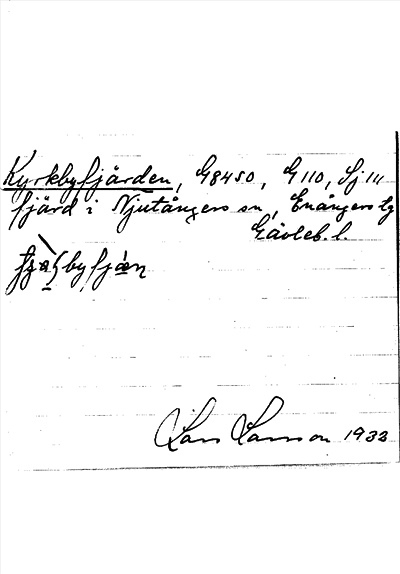 Kyrkbyfjärden, G8450, G110, Sj 111
fjärd i Njutångers sn, Enångers tg
Gävleb. l.
byfjän
Lars Larsson 1933